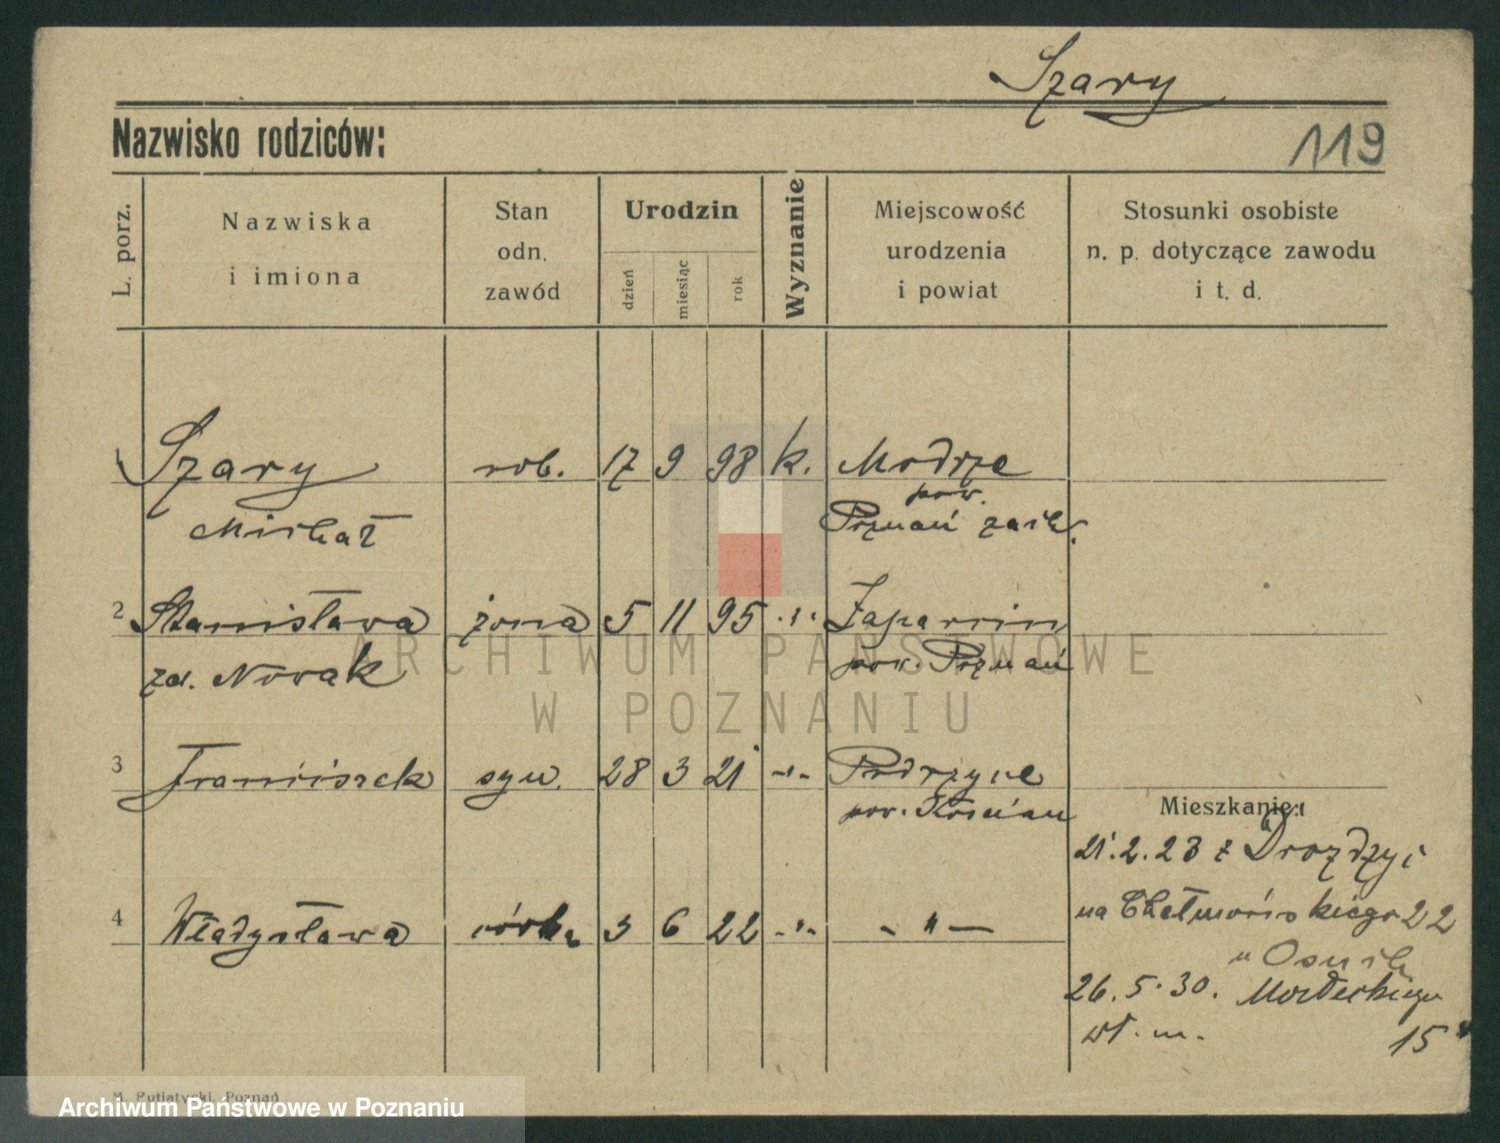 Szary
Nazwisko rodziców:
119
L. porz.
Nazwiska
i imiona
Stan
odn.
zawód
Urodzin
dzień
miesiąc
rok
Wyznanie
Miejscowość
urodzenia
i powiat
Stosunki osobiste
n. p. dotyczące zawodu
i t. d.
1 Szary rob. 17 9 98 k. Modrze
pow.
Michał Poznań zach.
2 Stanisława żona 5 11 95 -"-
zd. Nowak pow. Poznań
3 Franciszek syn. 28 3 21 -"-
pow. Kościan
4 Władysława córka 3 6 22 -"- - " -
Mieszkanie:
21.2.23 z
na Chełmońskiego 22
u
26.5.30.
wł. m. 15
ARCHIWUM PAŃSTWOWE
W POZNANIU
Putiatycki, Poznań
Archiwum Państwowe w Poznaniu